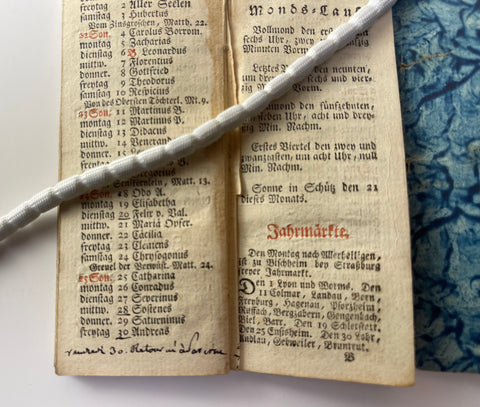 samstag 2 Aller Seelen
samstag 3 Hubertus
Vom Zinsgroschen, Matth. 22.
Son. 4 Carolus Borrom.
montag 5 Zacharias
dienstag 6 Leonardus
mittw. 7 Florentius
donner. 8 Gottfried
freytag 9 Theodorus
samstag 10 Respicius
Von des Obersten Töchterl. Mt. 9.
23 Son. 11 Martinus B.
montag 12 Martinus P.
dienstag 13 Didacus
mittw. 14 Veneranda
donner.
Gregorius
Senfkörnlein, Matt. 13.
Son. 18 Odo A.
montag 19 Elisabetha
dienstag 20 Felix v. Val.
mittw. 21 Mariä Opfer.
donner. 22 Cäcilia
freytag 23 Clemens
samstag 24 Chrysogonus
Greuel der Verwüst. Matt. 24.
Son. 25 Catharina
montag 26 Conradus
dienstag 27 Severinus
mittw. 28 Sostenes
donner. 29 Saturninus
freytag 30 Andreas
30. Retour
Monds-Lauf
Vollmond den
sechs Uhr, zwey
Minuten Vorm.
Letztes den neunten,
um drey Uhr, sechs und vier-
Min. Vorm.
Neumond den fünfzehnten,
Uhr, acht und drey-
Min. Nachm.
Erstes Viertel den zwey und
zwanzigsten, um acht Uhr, null
Min. Nachm.
Sonne in Schütz den 21
dieses Monats.
Jahrmärkte.
Den Montag nach Allerheiligen,
ist zu Bischheim bey Straßburg
freyer Jahrmarkt.
Den 1 Lyon und Worms. Den
11 Colmar, Landau, Born,
Freyburg, Hagenau, Pforzheim
Ruffach, Bergzabern, Gengenbach,
Biel, Barr. Den 19 Schletstatt.
Den 25 Ensisheim. Den 30 Lohr,
Andlau, Gebweiler, Bruntrut.
B